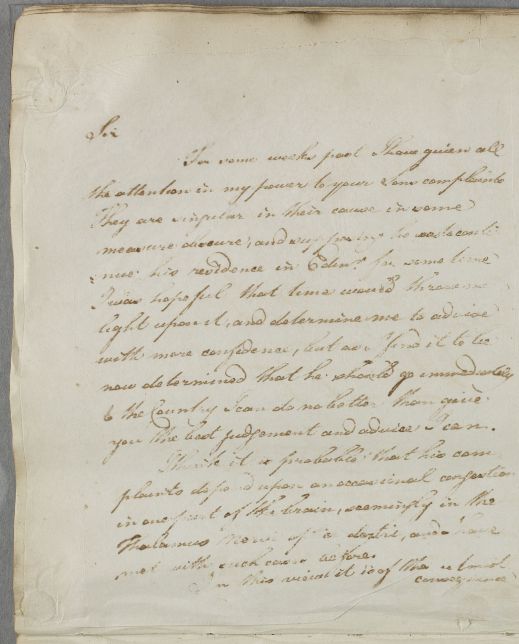 Sir
For some weeks past I have given all
the attention in my power to your Sons complaints
They are singular in their cause in some
measure obscure, and supposing he was to conti
nue his residence in Edinr. for some time
I was hopeful that time would throw me
light upon it, and determine me to advise
with more confidence, but as I find it to be
now determined that he should go immediately
to the Country I can do no better than give
you the best judgement and advice I can.
I think it is probable that his com
plaints depend upon an occasional congestion
in one part of the brain, seemingly in the
Thalamus and I have
met with such cases before.
In this view it is of the utmost
consequence